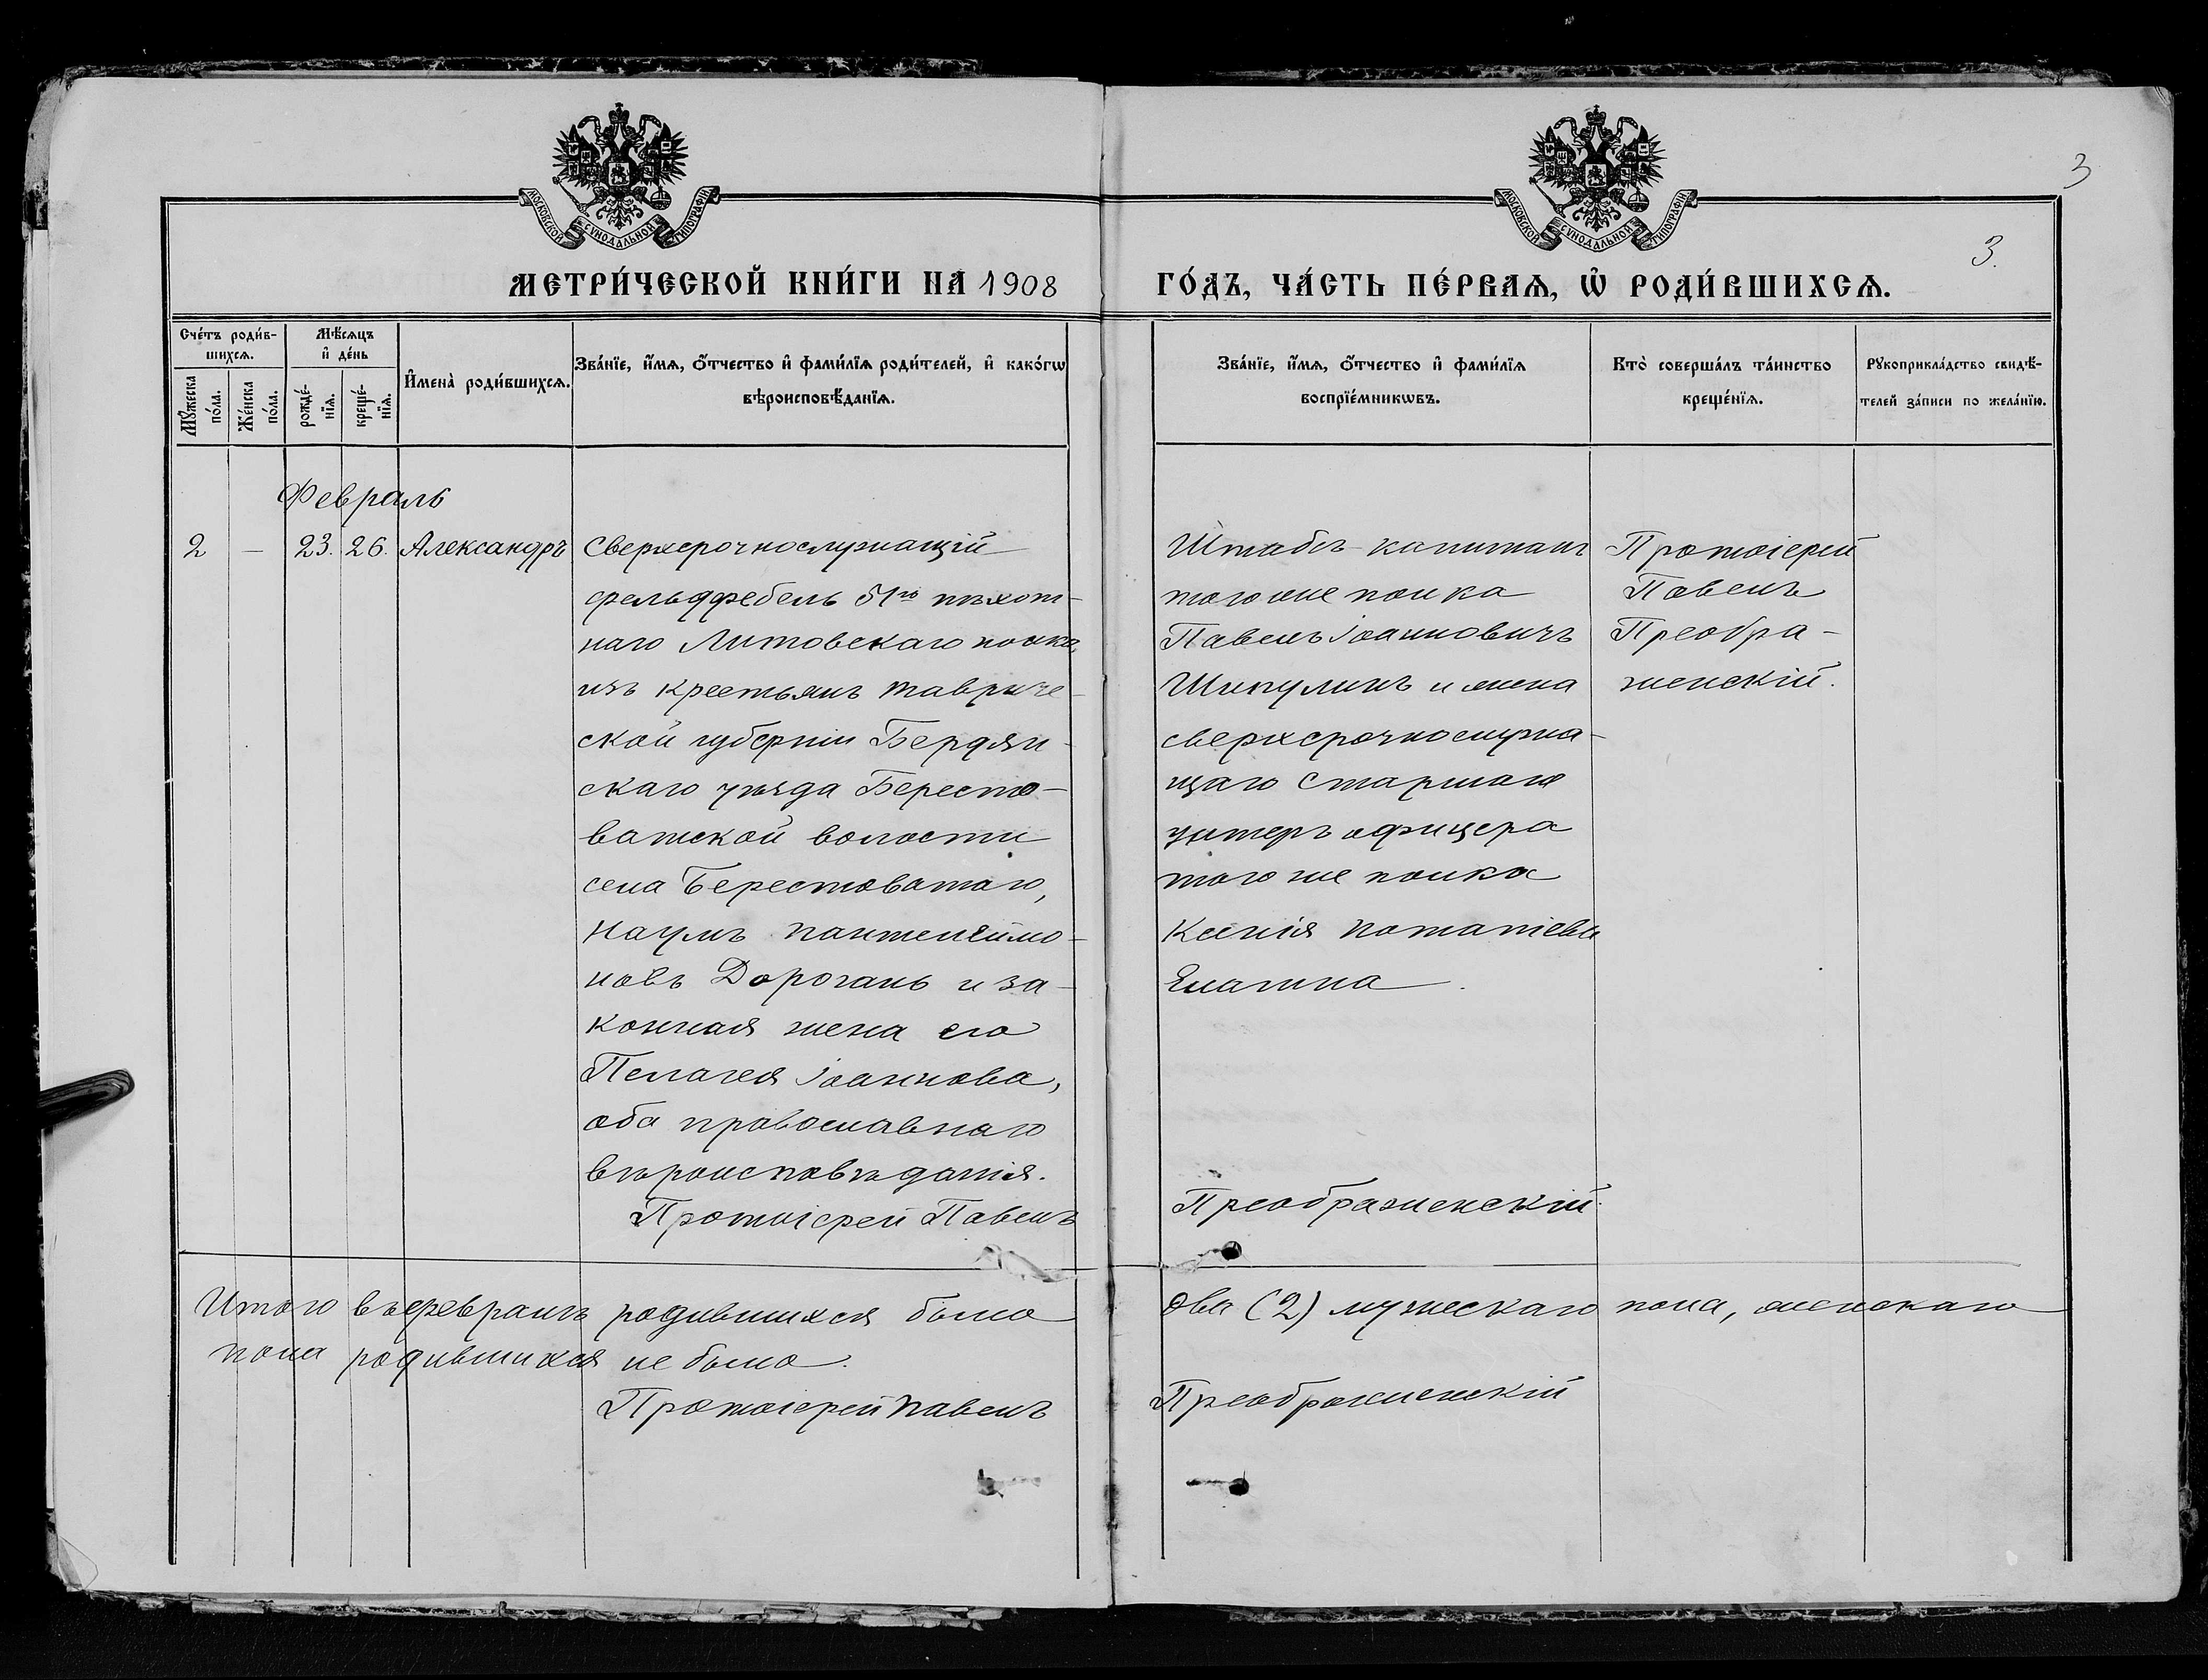 МОСКОВСКОЙ СѴНОДАЛЬНОЙ ТИПОГРАФІИ
МОСКОВСКОЙ СѴНОДАЛЬНОЙ ТИПОГРАФІИ
3
3.
МЕТРИ́ЧЕСКОЙ КНИ́ГИ НА 1908
ГО́ДЪ, ЧА́СТЬ ПЕ́РВАѦ, Ѡ҆ РОДИ́ВШИХСѦ.
Сче́тъ роди́в-
шихсѧ.
Мѣ́сѧцъ
и҆ де́нь
И҆мена̀ роди́вшихсѧ.
Зва́нїе, и҆́мѧ, ѻ҆́тчество и҆ фами́лїѧ роди́телей, и҆ како́гѡ
вѣроисповѣ́данїѧ.
Мꙋ́жеска
по́ла.
Же́нска
по́ла.
рожде́-
нїѧ.
креще́-
нїѧ.
Зва́нїе, и҆́мѧ, ѻ҆́тчество и҆ фами́лїѧ
воспрїе́мникѡвъ.
Кто̀ соверша́лъ та́инство
креще́нїѧ.
Рꙋкоприкла́дство свидѣ́-
телей за́писи по жела́нїю.
Февраль
2 — 23. 26. Александръ
Сверхсрочнослужащій
фельдфебель 51го пѣхот-
наго Литовскаго полка,
изъ крестьянъ Тавриче-
ской губерніи Бердян-
скаго уѣзда Бересто-
ватской волости
села Берестоватаго,
Наумъ Пантелеймо-
новъ Дорогань и за-
конная жена его
Пелагея Іоаннова,
оба православнаго
вѣроисповѣданія.
Протоіерей Павелъ
Штабсъ-капитанъ
того же полка
Павелъ Іоанновичъ
Шикулинъ и жена
сверхсрочнослужа-
щаго старшаго
унтеръ офицера
того же полка
Ксенія Потапіева
Елагина.
Преображенскій.
Протоіерей
Павелъ
Преобра-
женскій.
Итого въ февралѣ родившихся было
два (2) мужескаго пола, женскаго
пола родившихся не было.
Протоіерей Павелъ
Преображенскій